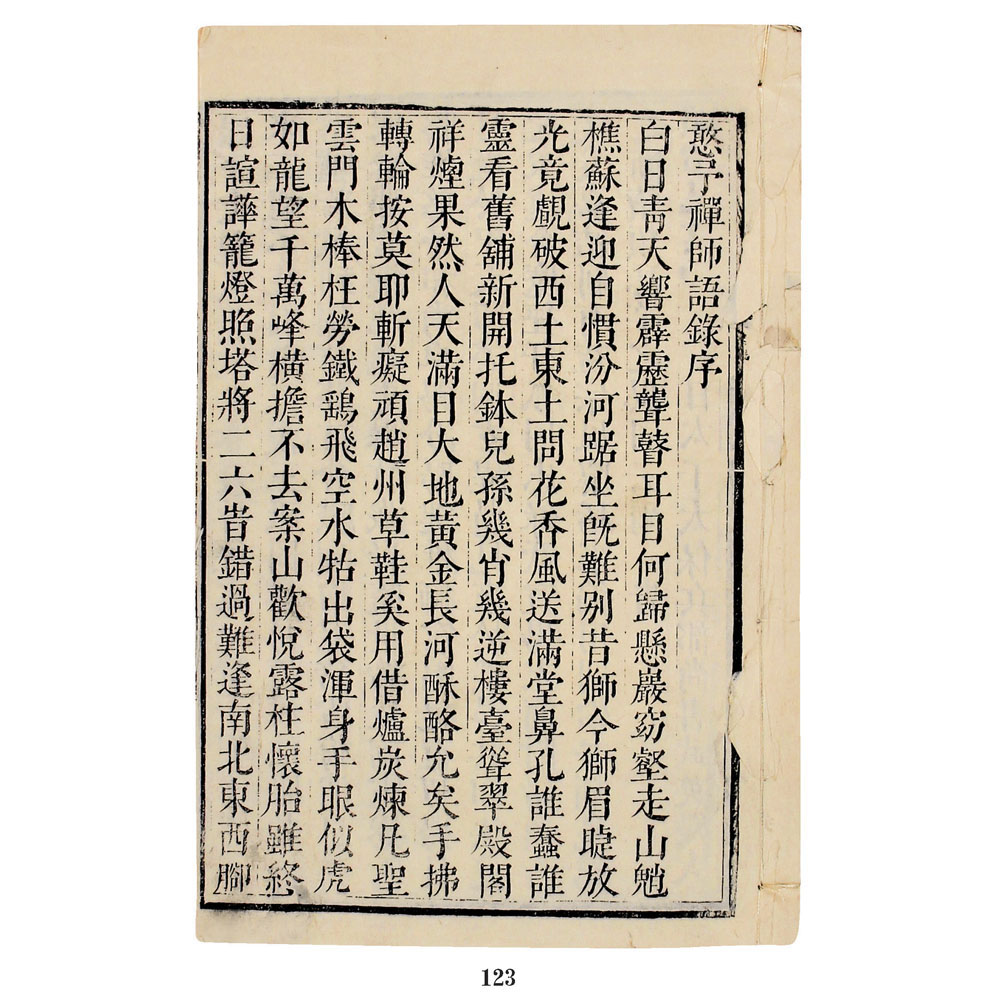 憨予禪師語錄序
白日青天響霹靂聾瞽耳目何歸懸巖窈壑走山魈
樵蘇逢迎自慣汾河踞坐旣難别昔獅今獅眉睫放
光竟覷破西土東土問花香風送滿堂鼻孔誰蠢誰
靈看舊舖新開托鉢兒孫幾肖幾逆樓臺聳翠殿閣
祥煙果然人天滿目大地黃金長河酥酪允矣手拂
轉輪按莫耶斬癡頑趙州草鞋奚用借爐炭煉凡聖
雲門木棒枉勞鐵鷂飛空水牯出袋渾身手眼似虎
如龍望千萬峰橫擔不去案山歡悅露柱懷胎雖終
日諠譁籠燈照塔將二六旹錯過難逢南北東西腳
123